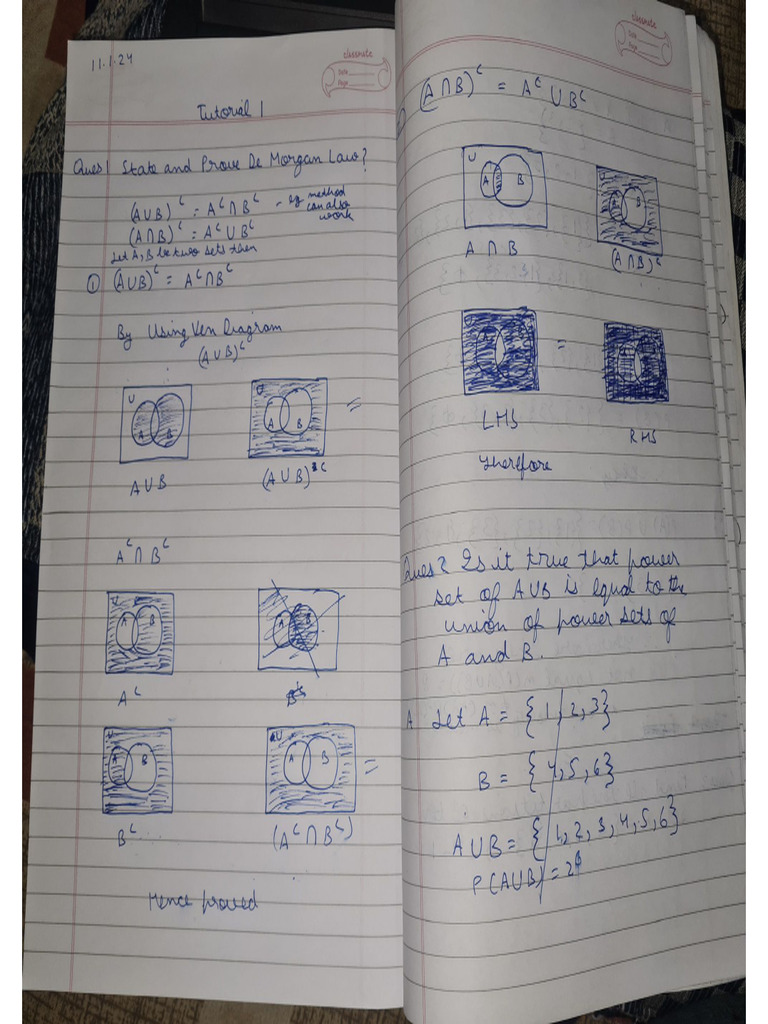 11.1.24
classmate
Date
Page
Tutorial 1
Ques 1 State and Prove De Morgan Law?
(A∪B)ᶜ = Aᶜ∩Bᶜ - eg method can also work
(A∩B)ᶜ = Aᶜ∪Bᶜ
Let A, B be two sets then
① (A∪B)ᶜ = Aᶜ∩Bᶜ
By Using Ven Diagram
(A∪B)ᶜ
U A B
U A B =
A∪B
(A∪B)ᶜ
Aᶜ∩Bᶜ
U A B
A B
Aᶜ
U A B
U A B =
Bᶜ
(Aᶜ∩Bᶜ)
Hence proved
classmate
Date
Page
(A∩B)ᶜ = Aᶜ∪Bᶜ
U A B
A B
A∩B
(A∩B)ᶜ
=
LHS
RHS
Therefore
Ques 2 Is it true that power
set of A∪B is equal to the
union of power sets of
A and B.
A Let A = {1, 2, 3}
B = {4, 5, 6}
A∪B = {1, 2, 3, 4, 5, 6}
P(A∪B) = 2⁶